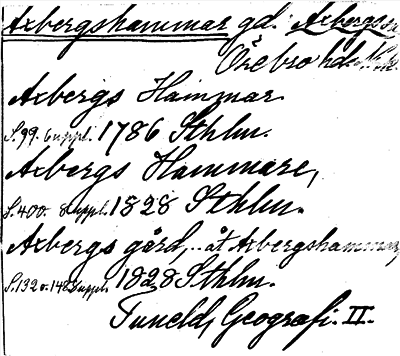 Axbergshammar gd. Axbergs sn
Örebro hd.
Axbergs Hammar.
S. 99. 6 uppl. 1786 Sthlm.
Axbergs Hammare,
S. 400. 8 uppl. 1828 Sthlm.
Axbergs gård, .. åt Axbergshammar,
S. 132 o. 148 8 uppl. 1828 Sthlm.
Tuneld, Geografi. II.